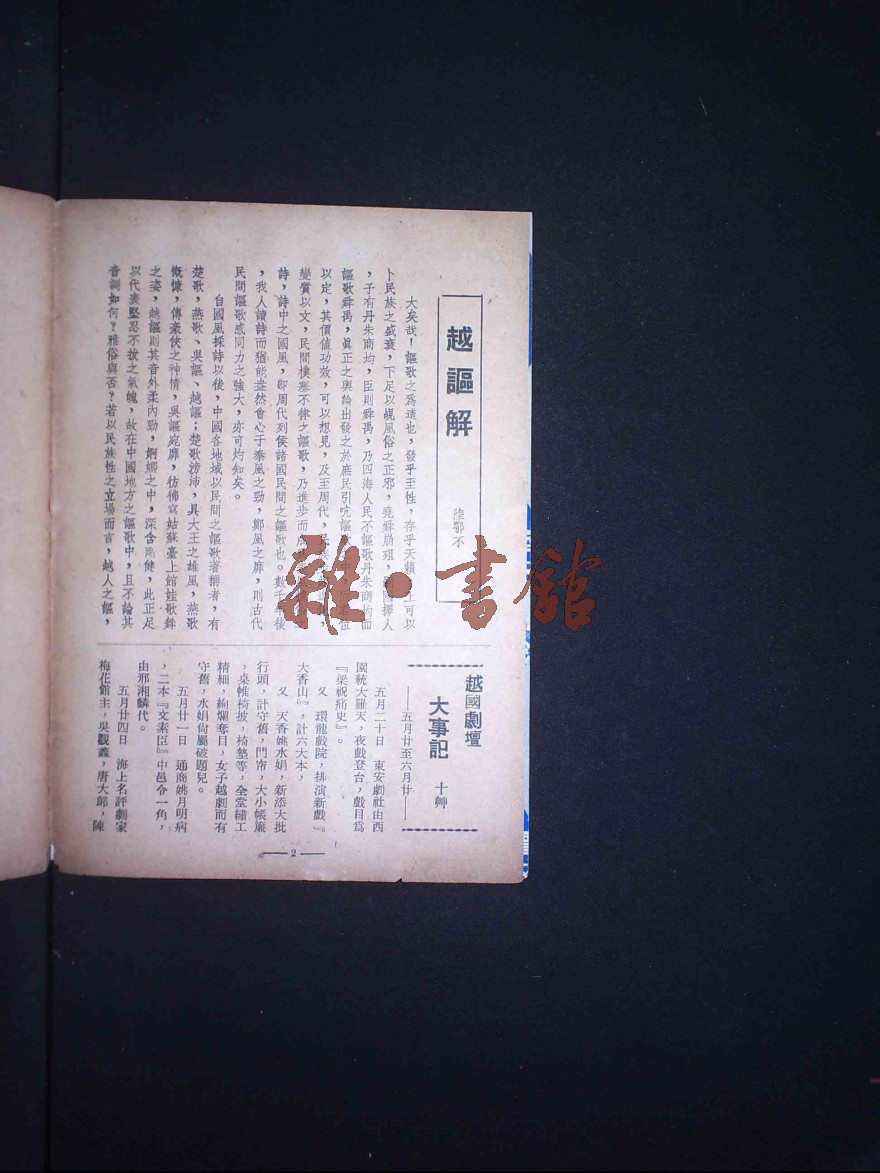 越謳解
陸鄂不
大矣哉!謳歌之爲道也,發乎至性,存乎天籟,上可以
卜民族之盛衰,下足以覘風俗之正邪,堯舜崩殂,國擇人
,子有丹朱商均,臣則舜禹,乃四海人民不謳歌丹朱商均而
謳歌舜禹,眞正之輿論出發之於庶民引吭謳中,君位
以定,其價値功效,可以想見,及至周代,民
變質以文,民間樸塞不律之謳歌,乃進步而成
詩,詩中之國風,卽周代列侯諸國民間之謳歌也。數千年後
,我人讀詩而猶能盎然會心于秦風之勁,鄭風之靡,則古代
民間謳歌感同力之強大,亦可灼知矣。
自國風採詩以後,中國各地域以民間之謳歌著稱者,有
楚歌,燕歌、吳謳、越謳;楚歌滂沛,具大王之雄風,燕歌
慨慷,傳豪俠之神情,吳謳宛靡,彷彿寫姑蘇臺上館娃歌舞
之姿,越謳則其音外柔內勁,婀娜之中,深含剛健,此正足
以代表堅忍不拔之氣魄,故在中國地方之謳歌中,且不論其
音調如何?雅俗與否?若以民族性之立場而言,越人之謳,
越國劇壇
大事記
十艸
——五月廿至六月廿——
五月二十日 東安劇社由西
園統大羅天,夜戲登台,戲目爲
『梁祝痛史』。
又 環龍戲院,排演新戲『
大香山』,計六大本,
又 天香姚水娟,新添大批
行頭,計守舊,門帘,大小帳簾
,桌帷椅披,椅墊等,全堂繡工
精細,絢爛奪目,女子越劇而有
守舊,水娟尙屬破題兒。
五月廿一日 通商姚月明病
,二本『文素臣』中邑令一角,
由邢湘麟代。
五月廿四日 海上名評劇家
梅花館主,吳觀蠡,唐大郞,陳
——2——
雜·書館